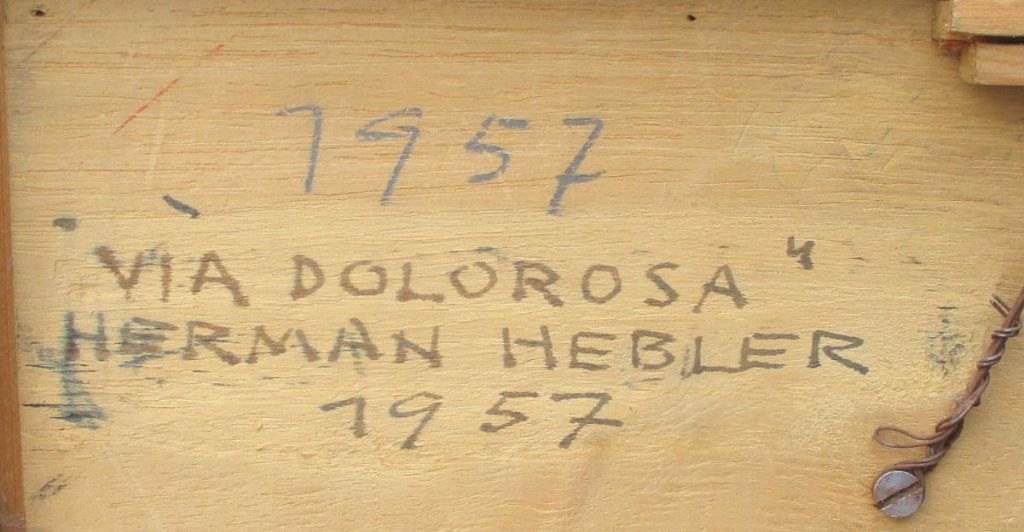 1957
"VIA DOLOROSA"
HERMAN HEBLER
1957